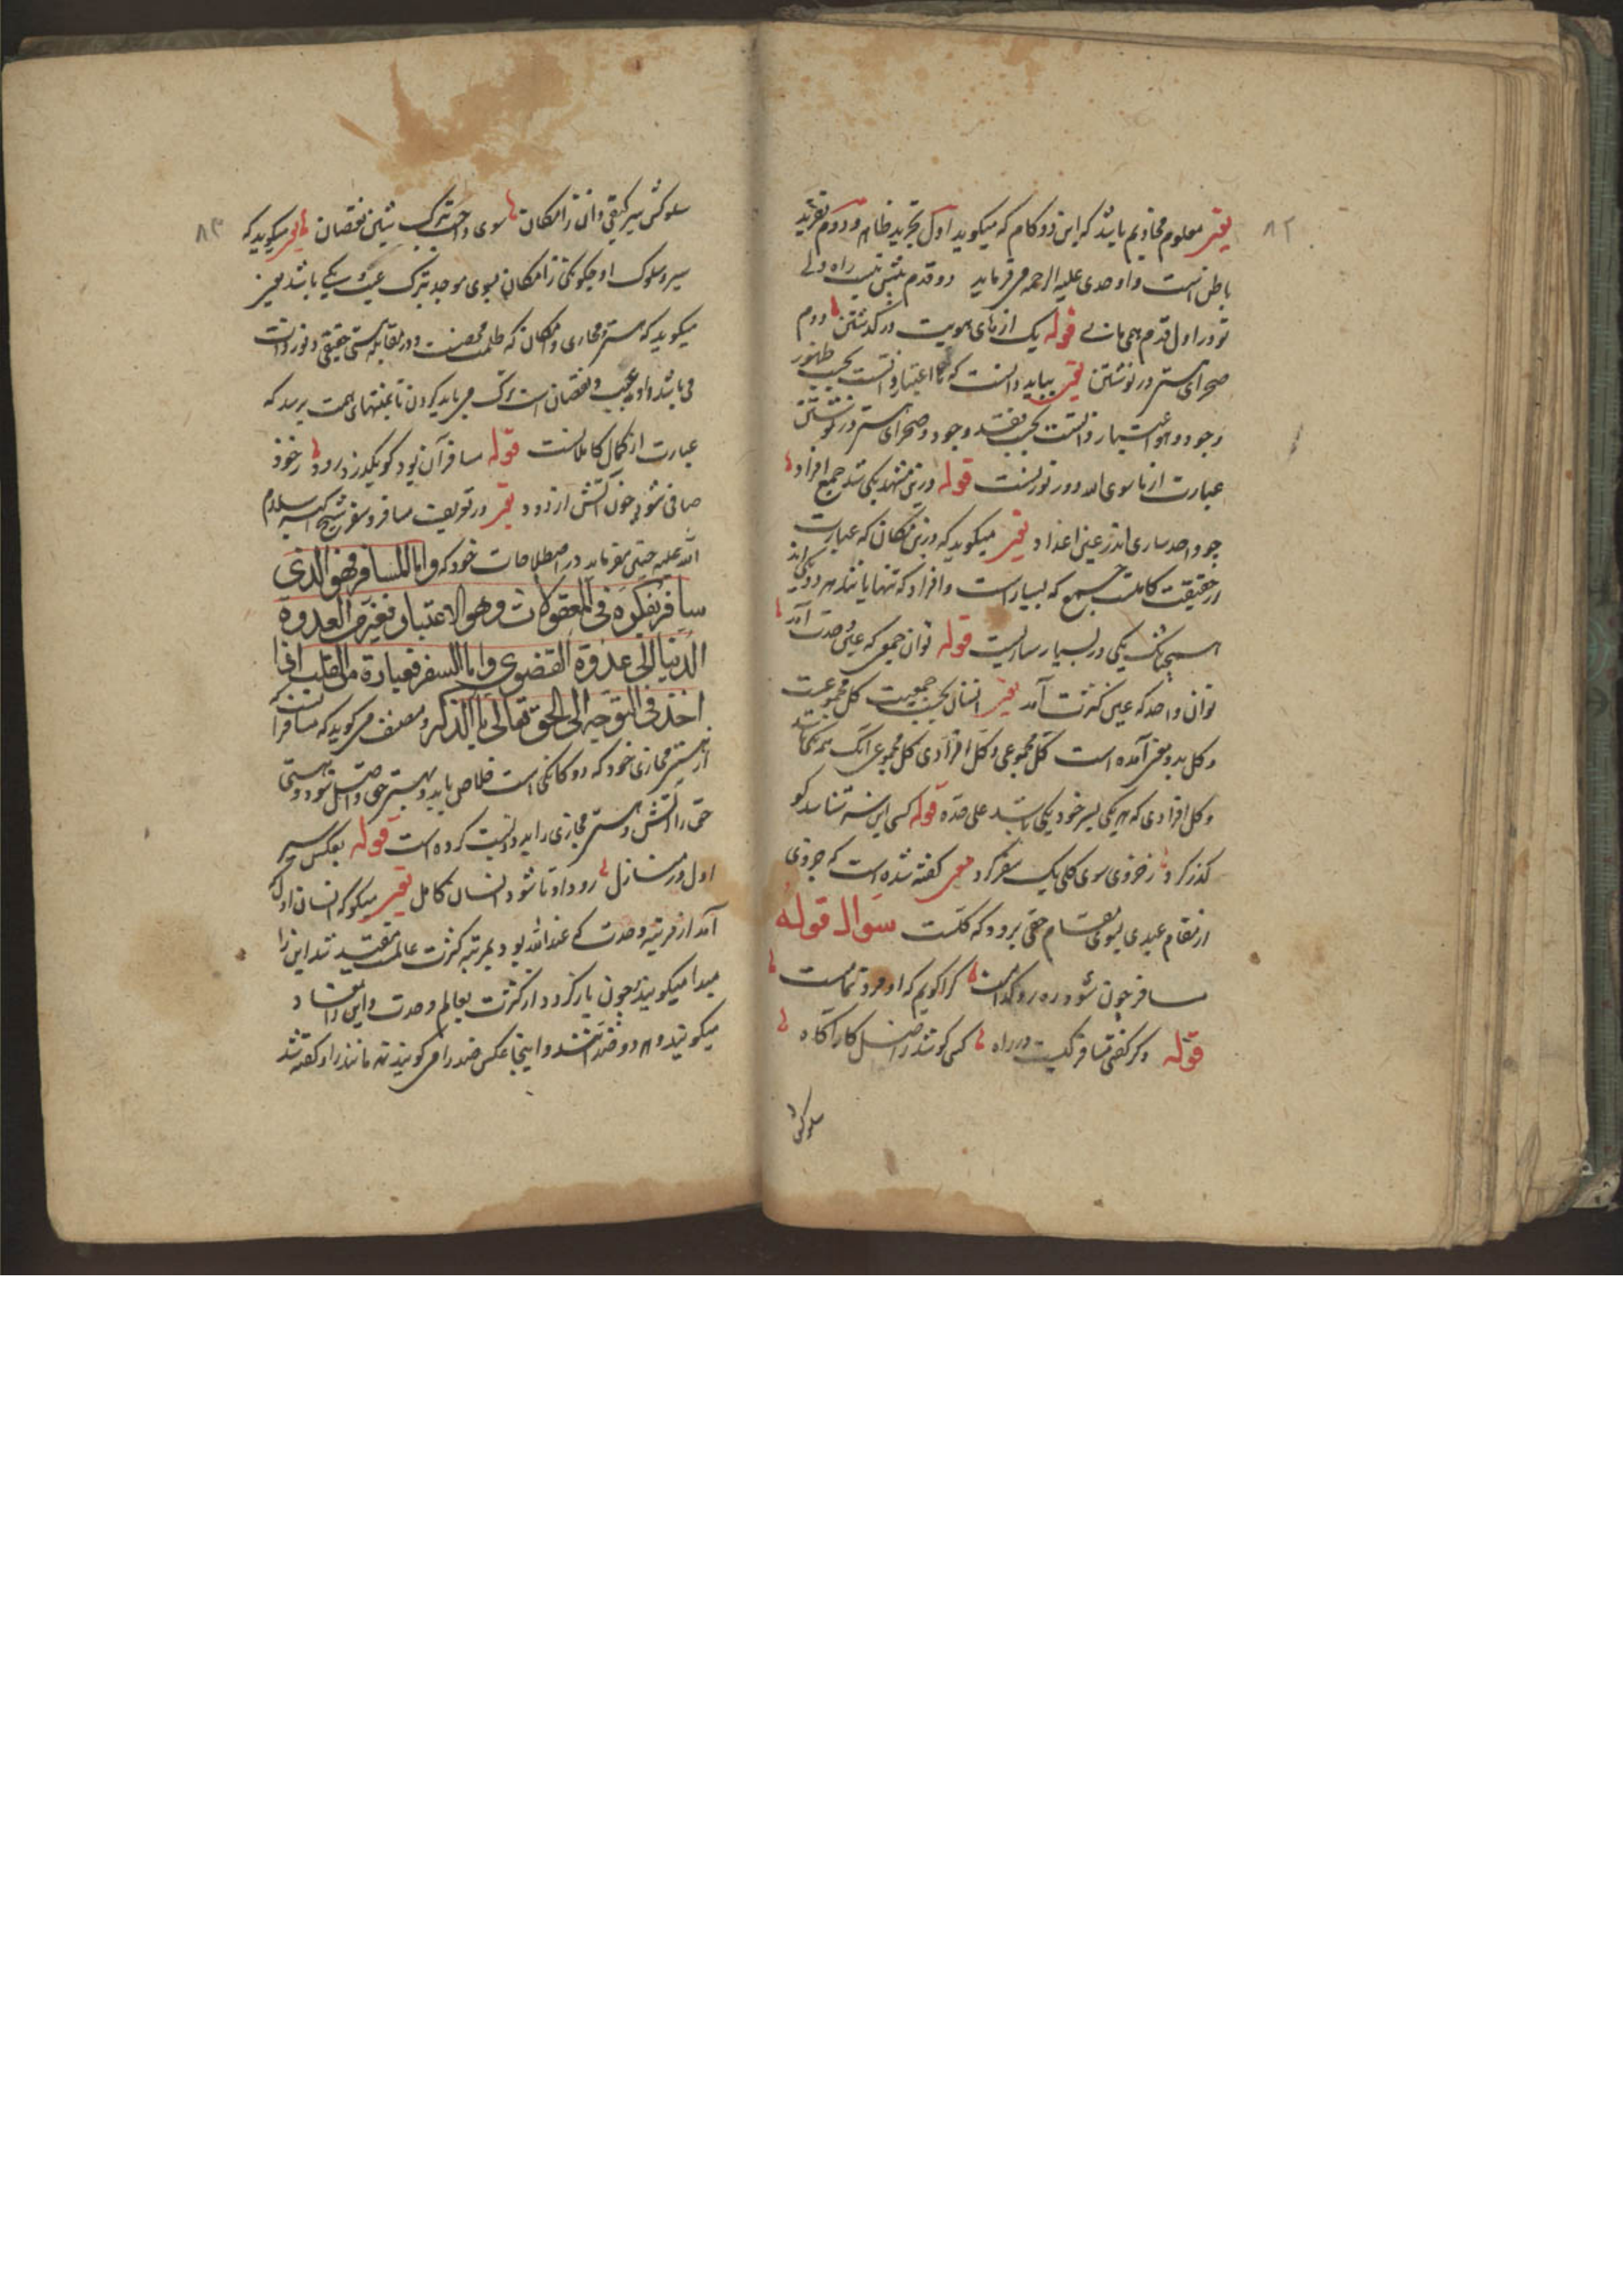 ٨٢
یعنی معلوم مخادیم باشد که این دو کام که میکوید اول تجرید ظاهر و دوم تفرید
باطن است و اوحدی علیه الرحمه می فرماید دو قدم بیش نیست راه ولی
تو در اول قدم همی مانی قوله یک از های هویت در کذشتن دوم
صحرای هستی در نوشتن یعنی بباید دانست که ها اعتبار ذاتست بحسب ظهور
وجود و هو اعتبار ذاتست بحسب فقد وجود و صحرای هستی در نوشتن
عبارت از ماسوی الله دور نورست قوله درین مشهد یکی شد جمع افراد
چو واحد ساری اندر عین اعداد یعنی میکوید که درین مکان که عبارت
از حقیقت کاملست جمع که بسیار است و افراد که تنهایانند هر دو یکی اند
همچنانک یکی در بسیار ساریست قوله تو آن جمعی که عین وحدت آمد
تو آن واحد که عین کثرت آمد یعنی انسان بحسب جمعیت کل مجموعست
و کل بدو معنی آمده است کل مجموعی و کل افرادی کل مجموعی آنک همه یکی باشد
و کل افرادی که هر یکی بسر خود یکی باشد علی حده قوله کسی این سر شناسد کو
کذر کرد ز جزوی سوی کلی یک سفر کرد یعنی کفته شده است که جزوی
از مقام عبدی بسوی مقام حقی برود که کلست سوال قوله
مسافر چون شود رهرو کدامست کرا کویم که او مرد تمامست
قوله دکر کفتی مسافر کیست در راه کسی کو شد ز اصل کار آکاه
سلوکش
٨٣
سلوکش سیر کشفی دان ز امکان سوی واجب بترک شین و نقصان یعنی میکوید که
سیر و سلوک او چکونکی ز امکان بسوی موجد بترک عیب و شکی باشد یعنی
میکوید که هستی مجازی و امکان که ظلمت محضست و در مقابله هستی حقیقی و نور ذات
می باشد و او عیب و نقصان است ترک می باید کردن تا بمنتهای همت برسد که
عبارت از کمال کاملانست قوله مسافر آن بود کو بکذرد زود ز خود
صافی شود چون آتش از دود یعنی در تعریف مسافر و سفر شیخ اکبر سلام
الله علیه چنین میفرماید در اصطلاحات خود که واما المسافر فهو الذی
سافر بفکره فی المعقولات وهو الاعتبار فعبر من العدوه
الدنیا الی عدوة القصوی واما السفر فعبارة من القلب اذا
اخذ فی التوجه الی الحق تعالی بالذکر و مصنف می کوید که مسافر آنست که
از هستی مجازی خود که دوکانکی است خلاص یابد و بهستی حق واصل شود و هستی
حق را آتش و هستی مجازی را بدود نسبت کرده است قوله بعکس سیر
اول در منازل رود او تا شود انسان کامل یعنی میکو که انسان اول
آمد از مرتبه وحدت که عند الله بود بمرتبه کثرت عالم مقید شد این را
مبدا میکویند چون باز کردد از کثرت بعالم وحدت و این را معاد
میکویند و هر دو ضد اخشند و اینجا عکس ضد را می کویند نه مانند را و کفته شد